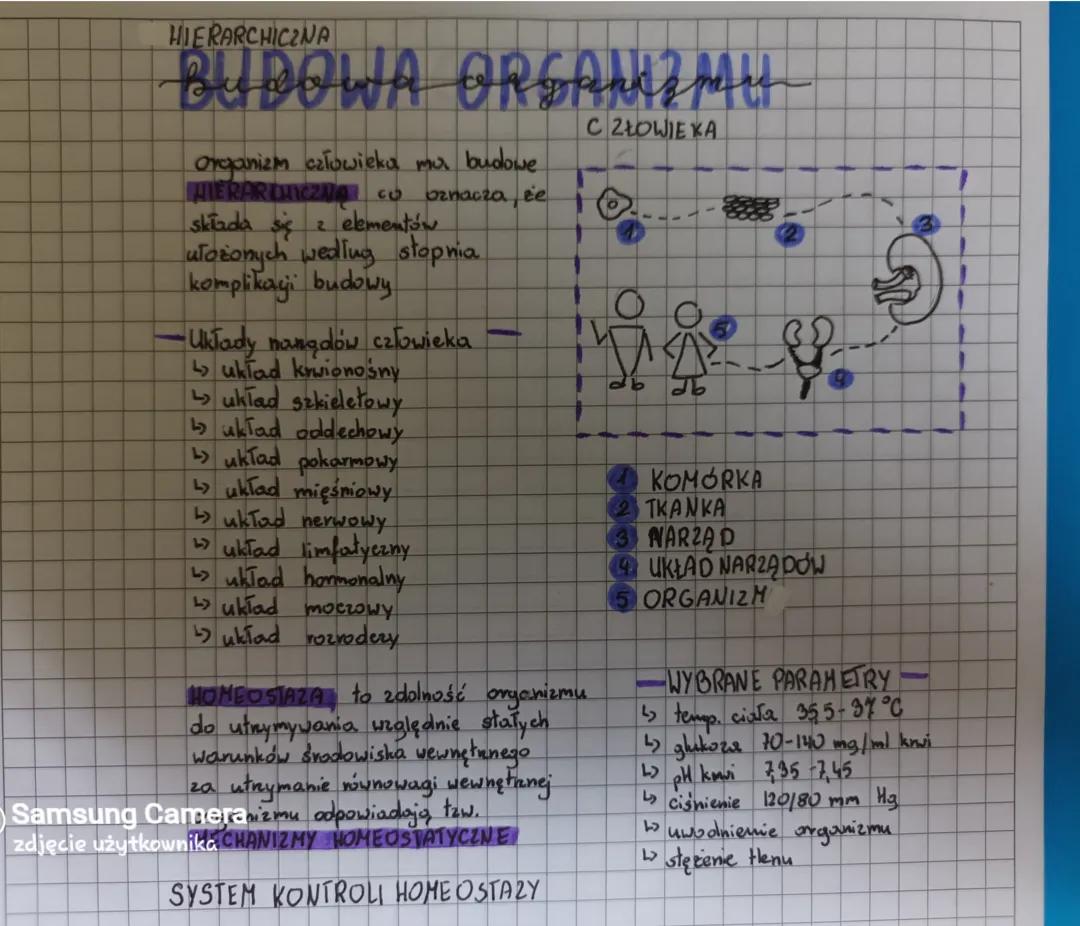 HIERARCHICZNA
BUDOWA ORGANIZMU
Budowa organizmu
CZŁOWIEKA
organizm człowieka ma budowe
HIERARCHICZNĄ co oznacza, że
składa się z elementów
ułożonych według stopnia
komplikacji budowy
Układy narządów człowieka
↳ układ krwionośny
↳ układ szkieletowy
↳ układ oddechowy
↳ układ pokarmowy
↳ układ mięśniowy
↳ układ nerwowy
↳ układ limfatyczny
↳ układ hormonalny
↳ układ moczowy
↳ układ rozrodczy
1
2
3
4
5
1 KOMÓRKA
2 TKANKA
3 NARZĄD
4 UKŁAD NARZĄDÓW
5 ORGANIZM
HOMEOSTAZA to zdolność organizmu
do utrzymywania względnie stałych
warunków środowiska wewnętrznego
za utrzymanie równowagi wewnętrznej
organizmu odpowiadają tzw.
MECHANIZMY HOMEOSTATYCZNE
WYBRANE PARAMETRY
↳ temp. ciała 35,5-37°C
↳ glukoza 70-140 mg/ml krwi
↳ pH krwi 7,35-7,45
↳ ciśnienie 120/80 mm Hg
↳ uwodnienie organizmu
↳ stężenie tlenu
SYSTEM KONTROLI HOMEOSTAZY
Samsung Camera
zdjęcie użytkownika